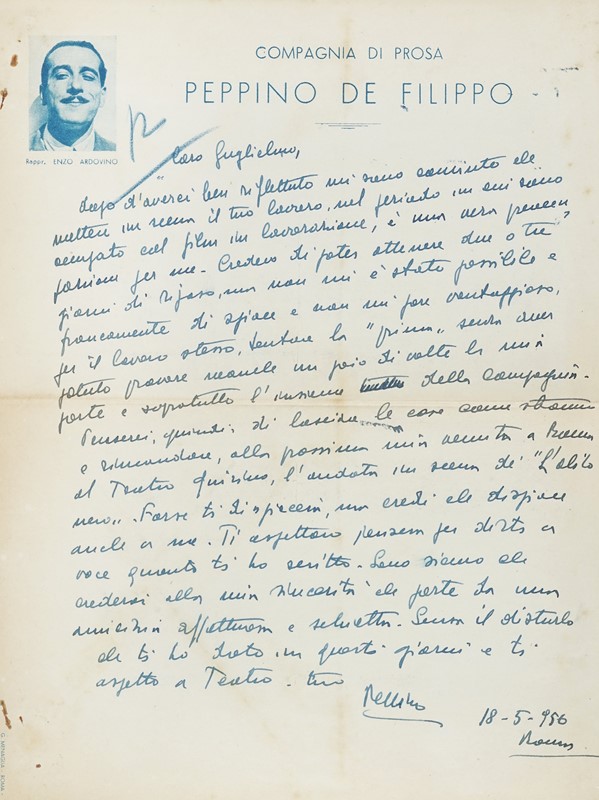 COMPAGNIA DI PROSA
PEPPINO DE FILIPPO
Rappr. ENZO ARDOVINO
Caro Guglielmo,
dopo d'averci ben riflettuto mi sono convinto che
mettere in scena il tuo lavoro, nel periodo in cui sono
occupato col film in lavorazione, è una vera preoccu
pazione per me - Credevo di poter ottenere due o tre
giorni di riposo, ma non mi è stato possibile e
francamente di spiace e non mi pare vantaggioso,
per il lavoro stesso, tentare la "prima" senza aver
potuto provare neanche un paio di volte la mia
parte e sopratutto l'insieme della Compagnia -
Penserei, quindi, di lasciare le cose come stanno
e rimandare, alla prossima mia venuta a Roma
al Teatro Quirino, l'andata in scena de "L'abito
nero". Forse ti dispiacerà, ma credi che dispiace
anche a me. Ti aspettavo per dirti a
voce quanto ti ho scritto. che
credersi alla mia sincerità che parte da una
amicizia affettuosa e schietta. Scusa il disturbo
che ti ho dato in questi giorni e ti
aspetto a Teatro - tuo
Peppino
18-5-956
Roma
G. MENAGLIA - ROMA